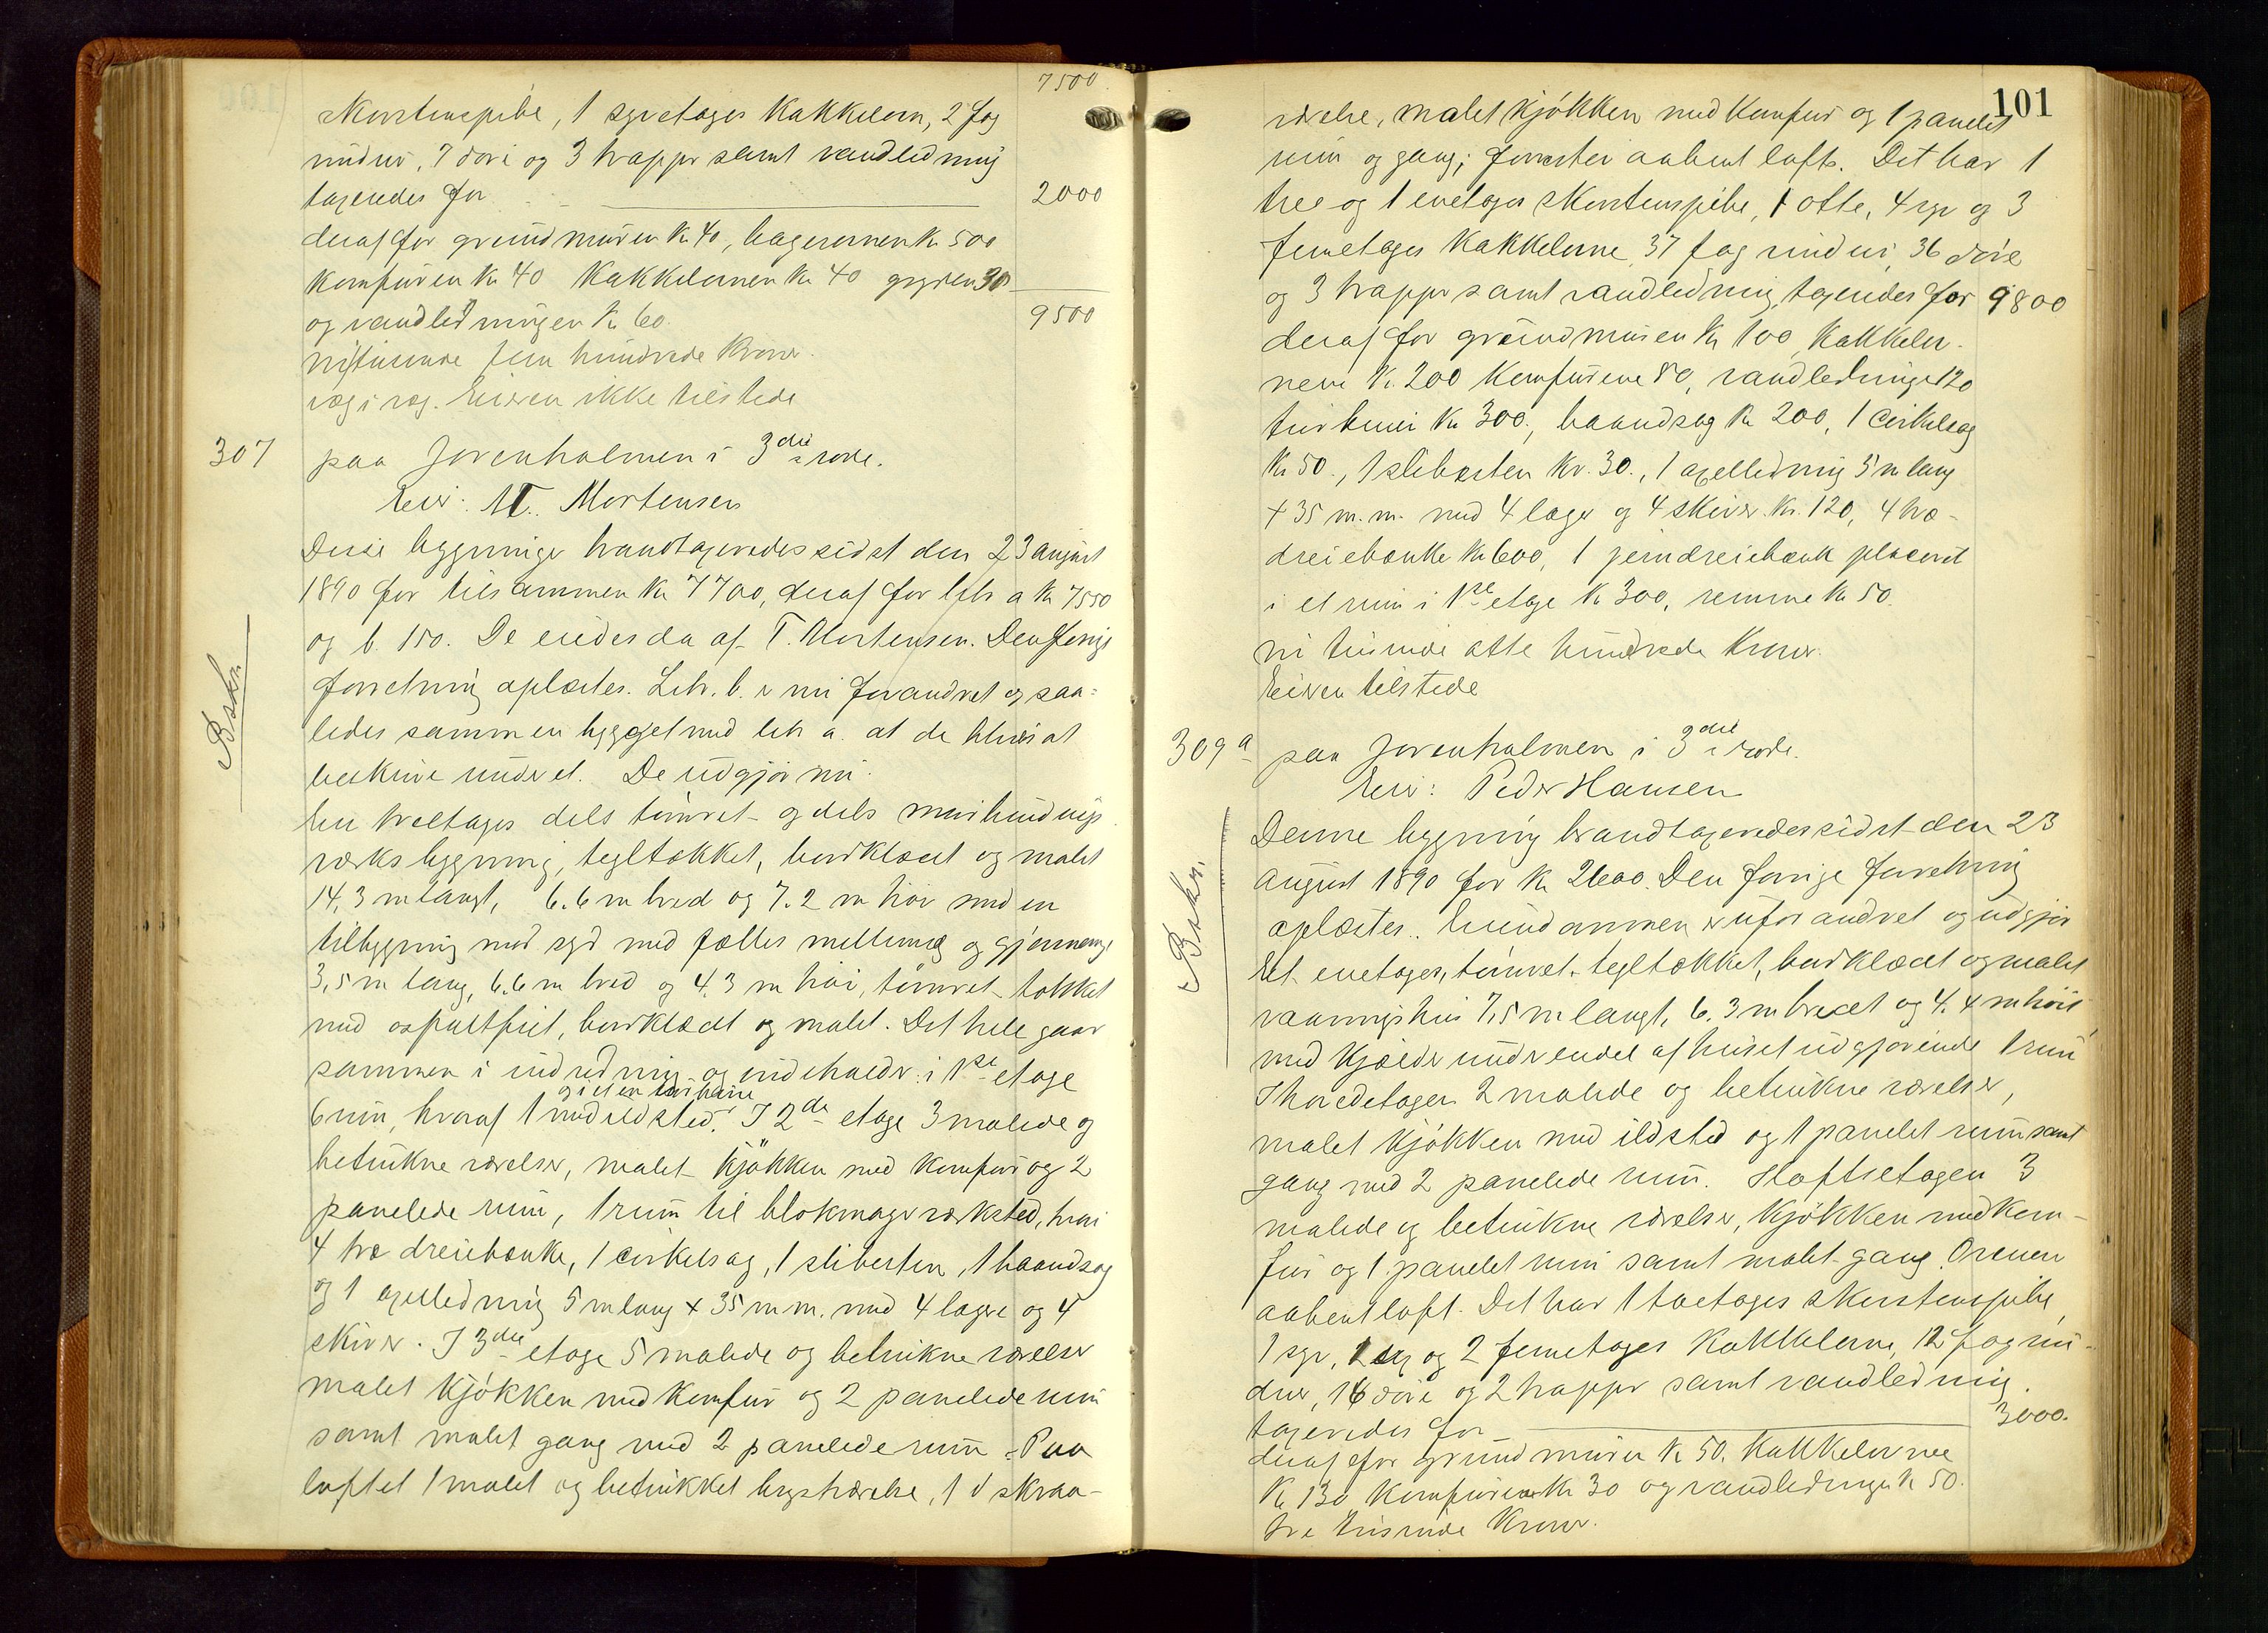 7500
Skorstenspibe, 1 syvetages Kakkelovn, 2 fag
vinduer, 7 døre og 3 trapper samt vandledning
taxeredes for 2000
deraf for grundmuren Kr 40, bagerovnen Kr 500
Komfuren Kr 40 Kakkelovnen Kr 40 gryden 30
og vandledningen Kr 60. 9500
nitusende fem hundrede Kroner.
væg i væg. Eieren ikke tilstede
307 paa Jovenholmen i 3die rode.
Eier: M. Mortensen
Disse bygninger brandtaxeredes sidst den 23 august
1890 for tilsammen Kr 7700, deraf for litr a Kr 7550
og b. 150. De eiedes da af T. Mortensen. Den forrige
forretning oplæstes. Litr. b. er nu forandret og saa=
ledes sammen bygget med litr a. at de bliver at
beskrive under et. De udgjør nu:
Beskr.
En treetages dels tømret og dels murbindings
værks bygning, tegltækket, bordklædt og malet
14,3 m langt, 6.6 m bred og 7.2 m høi med en
tilbygning mod syd med fælles mellemvæg og gjennemg
3,5 m lang, 6.6 m bred og 4.3 m høi, tømret, tækket
med asfaltfilt, bordklædt og malet. Det hele gaar
sammen i indredning og indeholder: i 1ste etage
6 rum, hvoraf 1 med ildsted. I 2de etage 3 malede og
betrukne værelser, malet Kjøkken med Komfur og 2
panelede rum, 1 rum til blokmagerværksted, hvori
4 træ dreiebænke, 1 cirkelsag, 1 slibesten, 1 baandsag
og 1 axelledning 5 m lang × 35 m.m. med 4 lagere og 4
skiver. I 3die etage 5 malede og betrukne værelser
malet Kjøkken med Komfur og 2 panelede rum
samt malet gang med 2 panelede rum. Paa
loftet 1 malet og betrukket kvistværelse, 1 d skraa-
101
værelse, malet Kjøkken med Komfur og 1 panelet
rum og gang; forresten aabent loft. Det har 1
tree og 1 enetages Skorstenspibe, 1 otte, 4 syv og 3
femetages Kakkelovne, 37 fag vinduer, 36 døre
og 3 trapper samt vandledning, taxeredes for 9800
deraf for grundmuren Kr 100, Kakkelov-
nene Kr. 200 Komfurene 80, vandledningen 120
turbinen Kr 300., baandsag Kr 200, 1 Cirkelsag
Kr 50., 1 slibesten Kr. 30., 1 axelledning 5 m lang
× 35 m.m. med 4 lager og 4 skiver Kr. 120, 4 træ-
dreiebænke Kr 600, 1 jerndreiebænk placeret
i et rum i 1ste etage Kr 300, remme Kr 50.
ni tusinde otte hundrede Kroner.
Eieren tilstede
309a paa Jovenholmen i 3die rode.
Eier: Peder Hansen
Denne bygning brandtaxeredes sidst den 23
august 1890 for Kr 2600. Den forrige forretning
oplæstes. Eiendommen er uforandret og udgjør
Beskr.
Et enetages, tømret, tegltækket, bordklædt og malet
vaaningshus 7,5 m langt, 6.3 m bredt og 4.4 m høit
med Kjælder under endel af huset udgjørende 1 rum
I hovedetagen 2 malede og betrukne værelser,
malet Kjøkken med ildsted og 1 panelet rum samt
gang med 2 panelede rum. I loftsetagen 3
malede og betrukne værelser, Kjøkken med Kom-
fur og 1 panelet rum samt malet gang. Ovenen
aabent loft. Det har 1 toetages Skorstenspibe,
1 syv, og 2 femetages Kakkelovne, 12 fag vin-
duer, 16 døre og 2 trapper samt vandledning.
taxeredes for 3000.
deraf for grundmuren Kr 50. Kakkelovnene
Kr 130 Komfuren Kr 30 og vandledningen Kr 50.
tre tusinde Kroner.